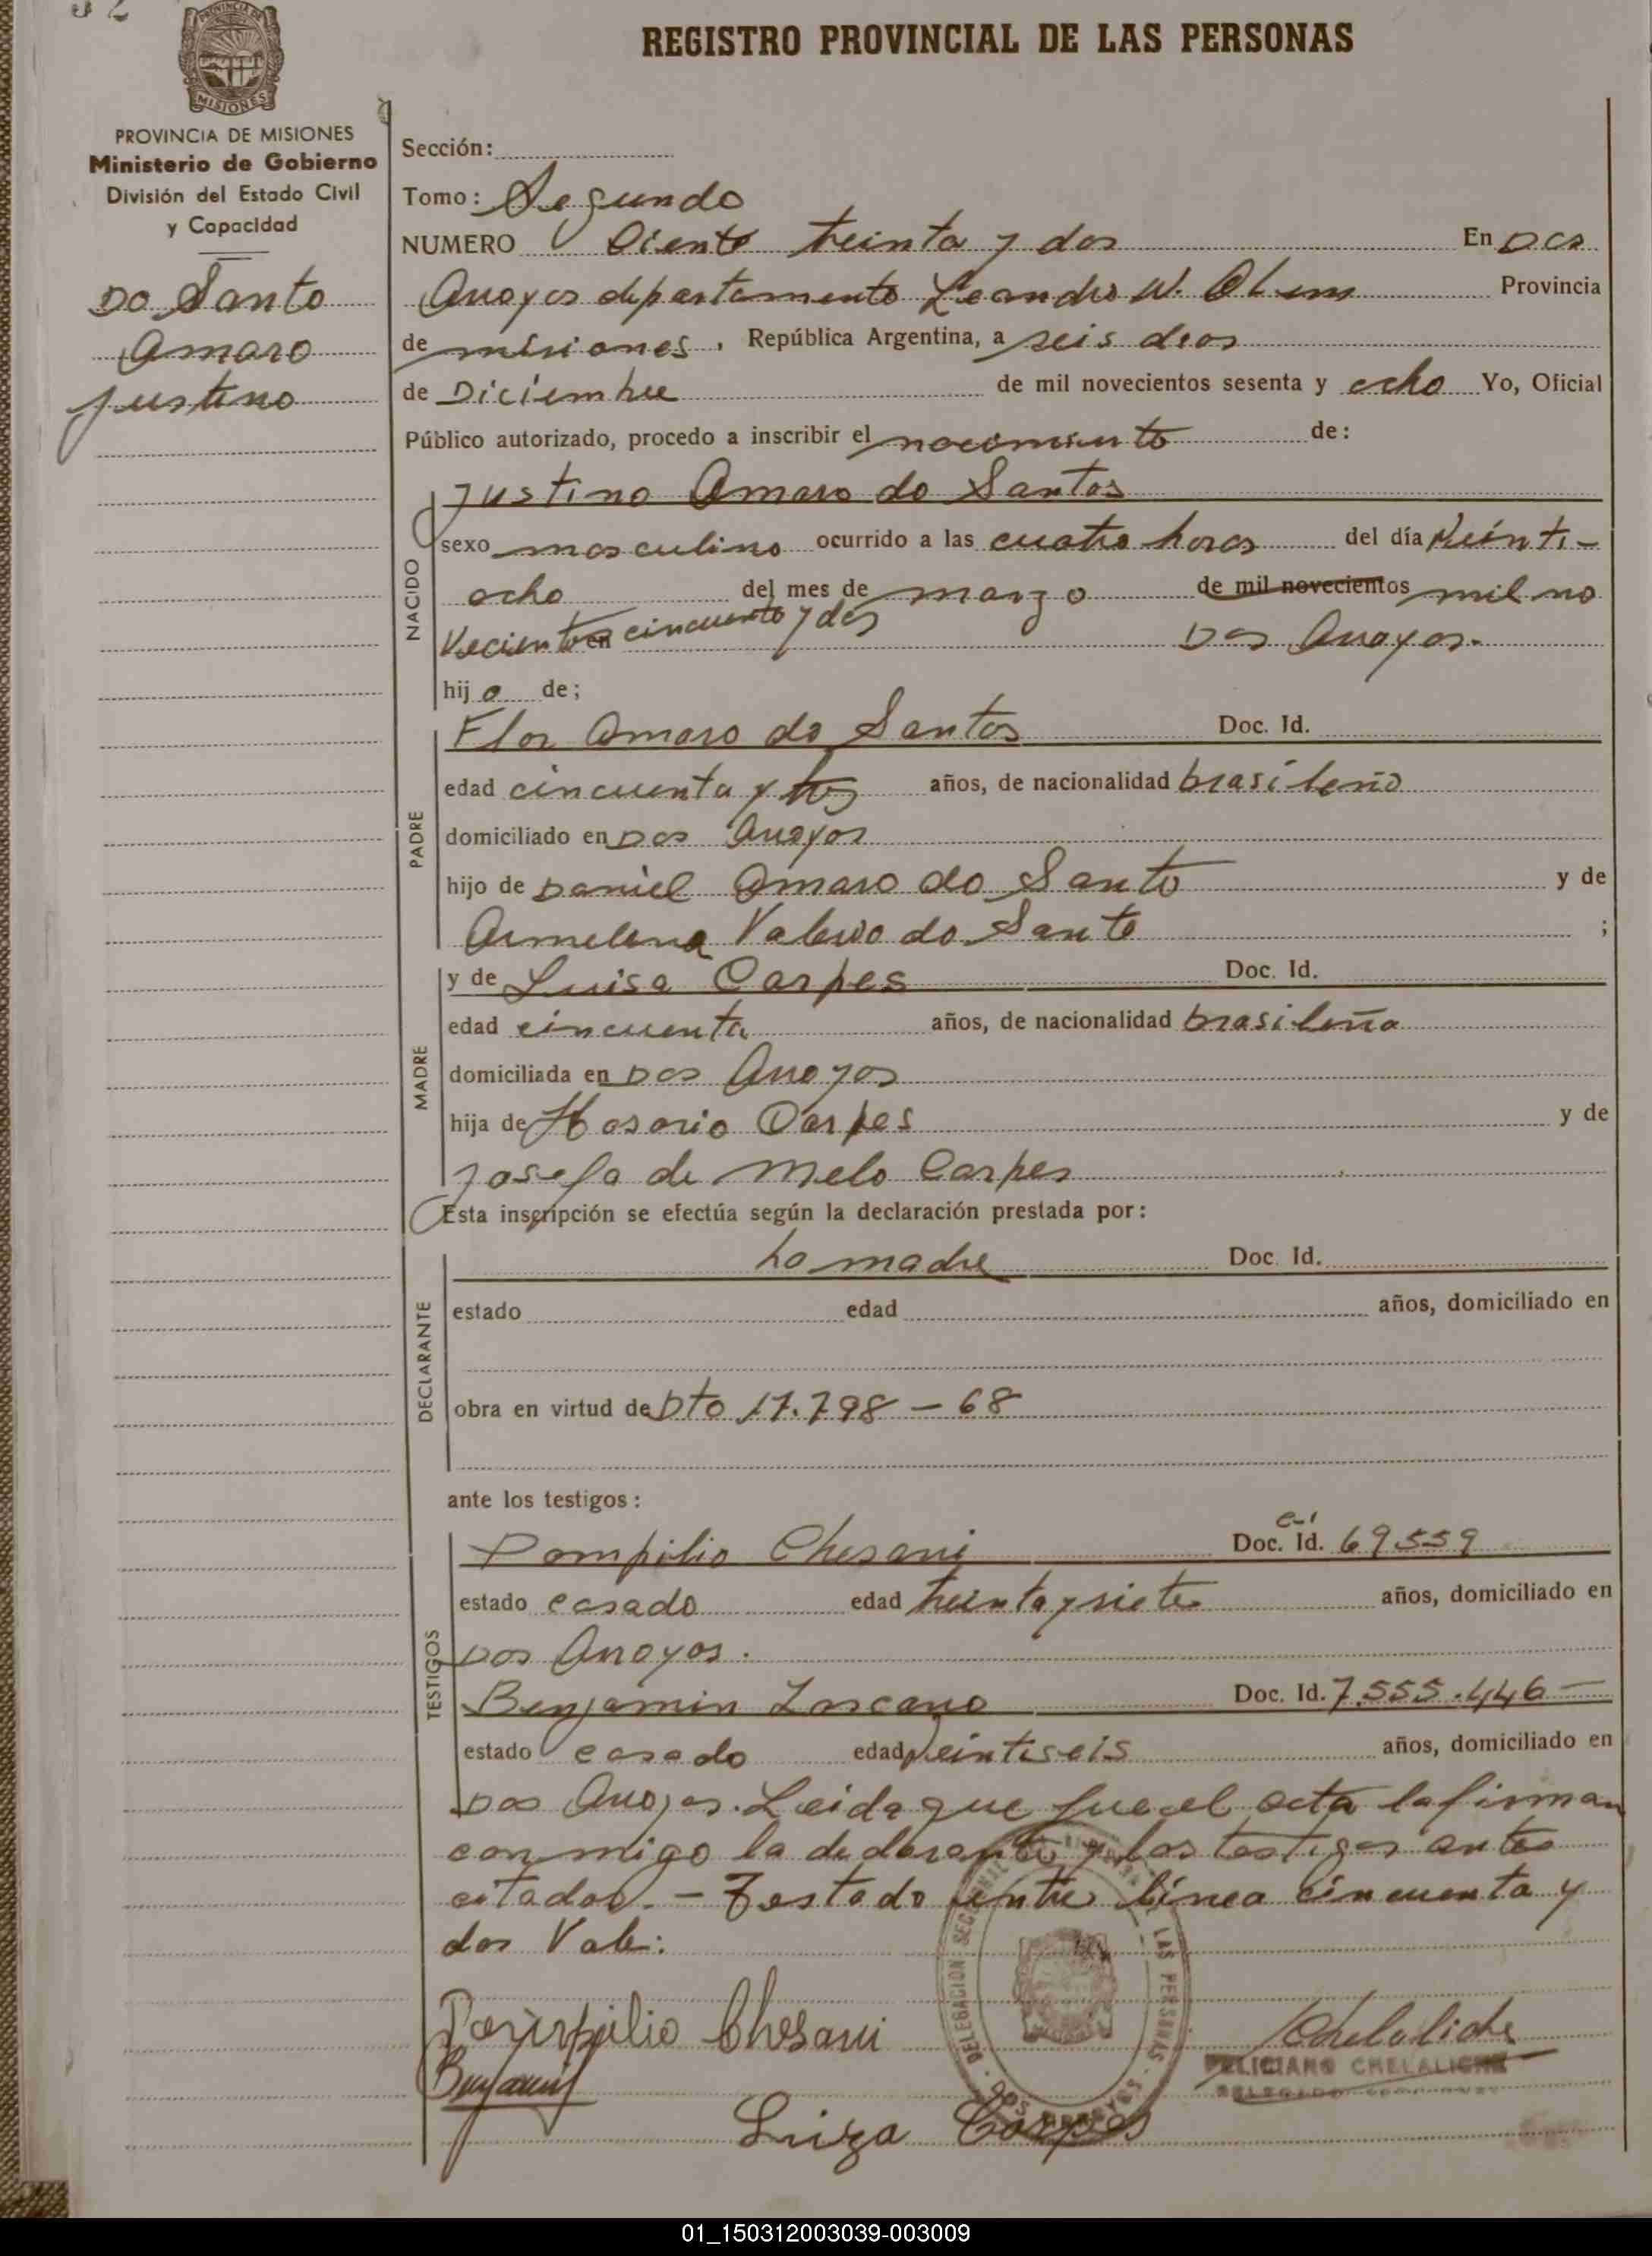 32
PROVINCIA DE
MISIONES
REGISTRO PROVINCIAL DE LAS PERSONAS
PROVINCIA DE MISIONES
Ministerio de Gobierno
División del Estado Civil
y Capacidad
Do Santo
Amaro
Justino
Sección:
Tomo: Segundo
NUMERO Ciento treinta y dos En Dos
Arroyos departamento Leandro N. Alem Provincia
de misiones, República Argentina, a seis dias
de Diciembre de mil novecientos sesenta y ocho Yo, Oficial
Público autorizado, procedo a inscribir el nacimiento de:
NACIDO
Justino Amaro do Santos
sexo masculino ocurrido a las cuatro horas del día Veinti-
ocho del mes de marzo de mil novecientos mil no
Vecientos en cincuenta y dos Dos Arroyos.
hijo de;
PADRE
Flor Amaro do Santos Doc. Id.
edad cincuenta y tres años, de nacionalidad brasileño
domiciliado en Dos Arroyos
hijo de Daniel Amaro do Santo y de
Armelina Valerio do Santo ;
MADRE
y de Luisa Carpes Doc. Id.
edad cincuenta años, de nacionalidad brasileña
domiciliada en Dos Arroyos
hija de Hosorio Carpes y de
Josefa de Melo Carpes
Esta inscripción se efectúa según la declaración prestada por:
DECLARANTE
La madre Doc. Id.
estado edad años, domiciliado en
obra en virtud de Dto 17.798 - 68
ante los testigos:
TESTIGOS
Pompilio Chesani Doc. Id. c.i 69559
estado casado edad treinta y siete años, domiciliado en
Dos Arroyos.
Benjamin Loscano Doc. Id. 7.555.446-
estado casado edad Veintiseis años, domiciliado en
Dos Arroyos. Leida que fue el acta la firman
conmigo la declarante y los testigos antes
citados. - Testado entre linea cincuenta y
dos Vale:
DELEGACION LAS PERSONAS DOS ARROYOS
Pompilio Chesani
Chelaliche
FELICIANO CHELALICHE
Benjamin
Luiza Carpes
01_150312003039-003009